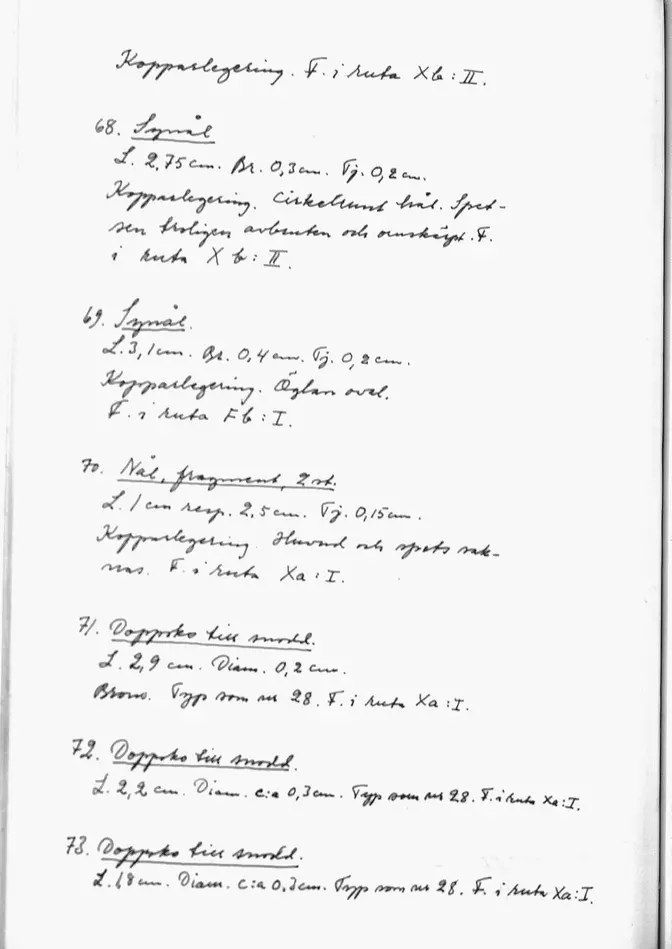 Kopparlegering. F. i ruta Xb : II.
68. Synål
L. 2,75 cm. Br. 0,3 cm. Tj. 0,2 cm.
Kopparlegering. Cirkelrunt hål. Spet-
sen troligen avbruten och omskärpt. F.
i ruta X b : II.
69. Synål.
L. 3,1 cm. Br. 0,4 cm. Tj. 0,2 cm.
Kopparlegering. Öglan oval.
F. i ruta Fb : I.
70. Nål, fragment, 2 st.
L. 1 cm resp. 2,5 cm. Tj. 0,15 cm.
Kopparlegering. Huvud och spets sak-
nas. F. i ruta Xa : I.
71. Doppsko till snodd.
L. 2,9 cm. Diam. 0,2 cm.
Brons. Typ som nr 28. F. i ruta Xa : I.
72. Doppsko till snodd.
L. 2,2 cm. Diam. c:a 0,3 cm. Typ som nr 28. F. i ruta Xa : I.
73. Doppsko till snodd.
L. 1,8 cm. Diam. c:a 0,3 cm. Typ som nr 28. F. i ruta Xa : I.